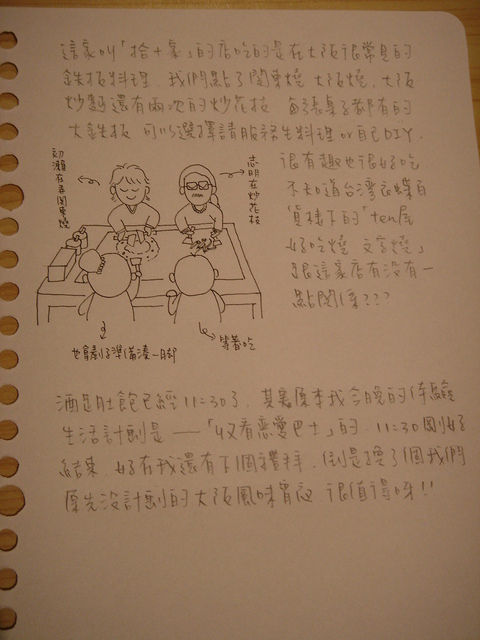 這家叫「拾十家」的店吃的是在大阪很常見的
鐵板料理. 我們點了関東燒 大阪燒. 大阪
炒麵還有兩次的炒花枝 每張桌子都有的
大鐵板 可以選擇請服務生料理 or 自己DIY.
很有趣也很好吃.
不知道台灣
樓下的「ten屋
好吃燒 文字燒」
跟這家店有沒有一
點關係???
初瀨在弄関東燒
志明在炒花枝
也拿剷子準備湊一腳
等著吃
酒足肚飽已經11:30了. 其實原本我今晚的体驗
生活計劃是 ——「收看戀愛巴士」的. 11:30剛好
結束. 好在我還有下個禮拜. 倒是換了個我們
原先沒計劃的大阪風味宵夜 很值得呀!!